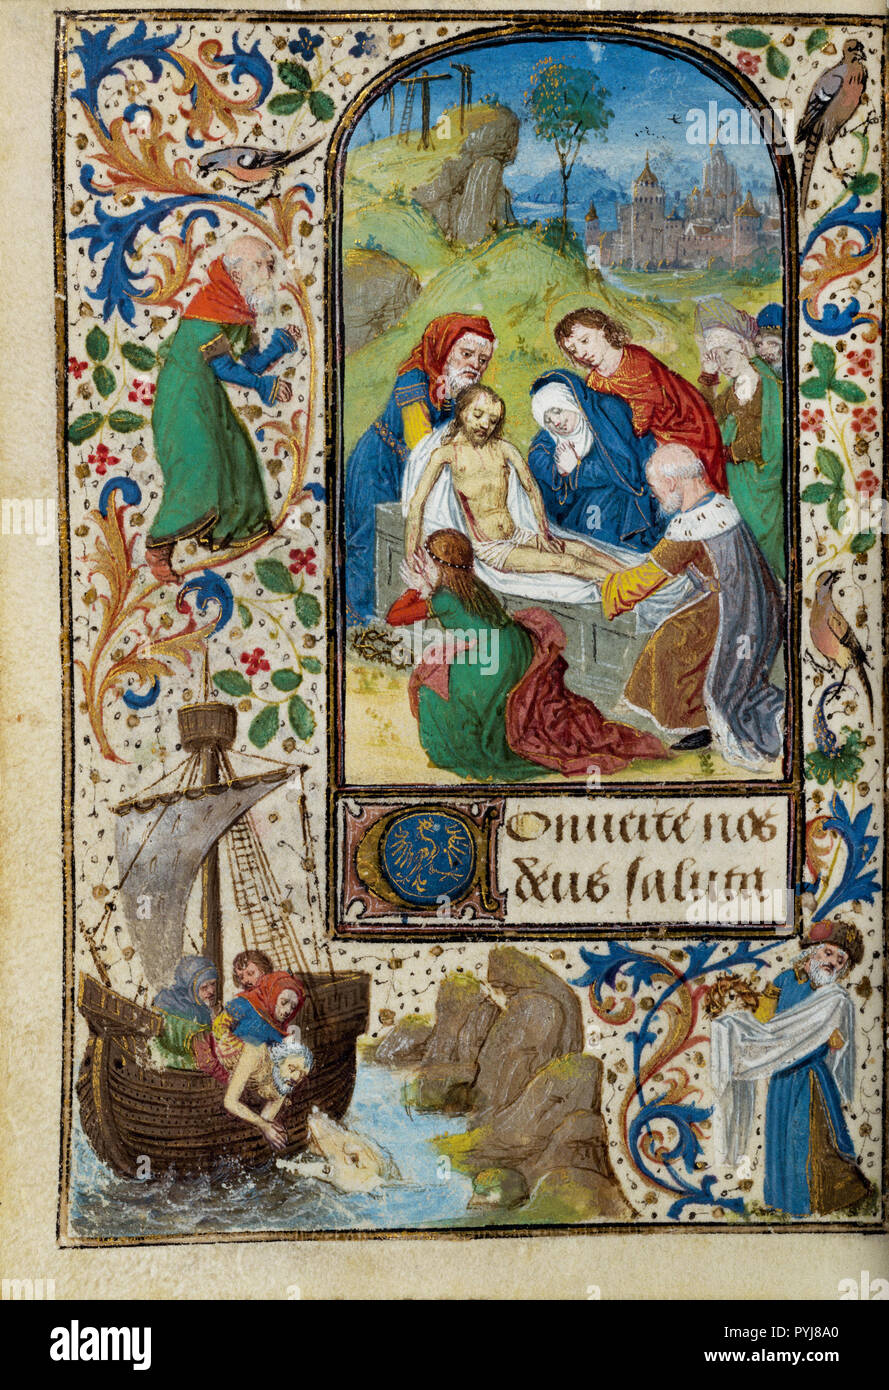 Conuerte nos
deus saluta
alamy
Image ID: PYJ8A0
www.alamy.com